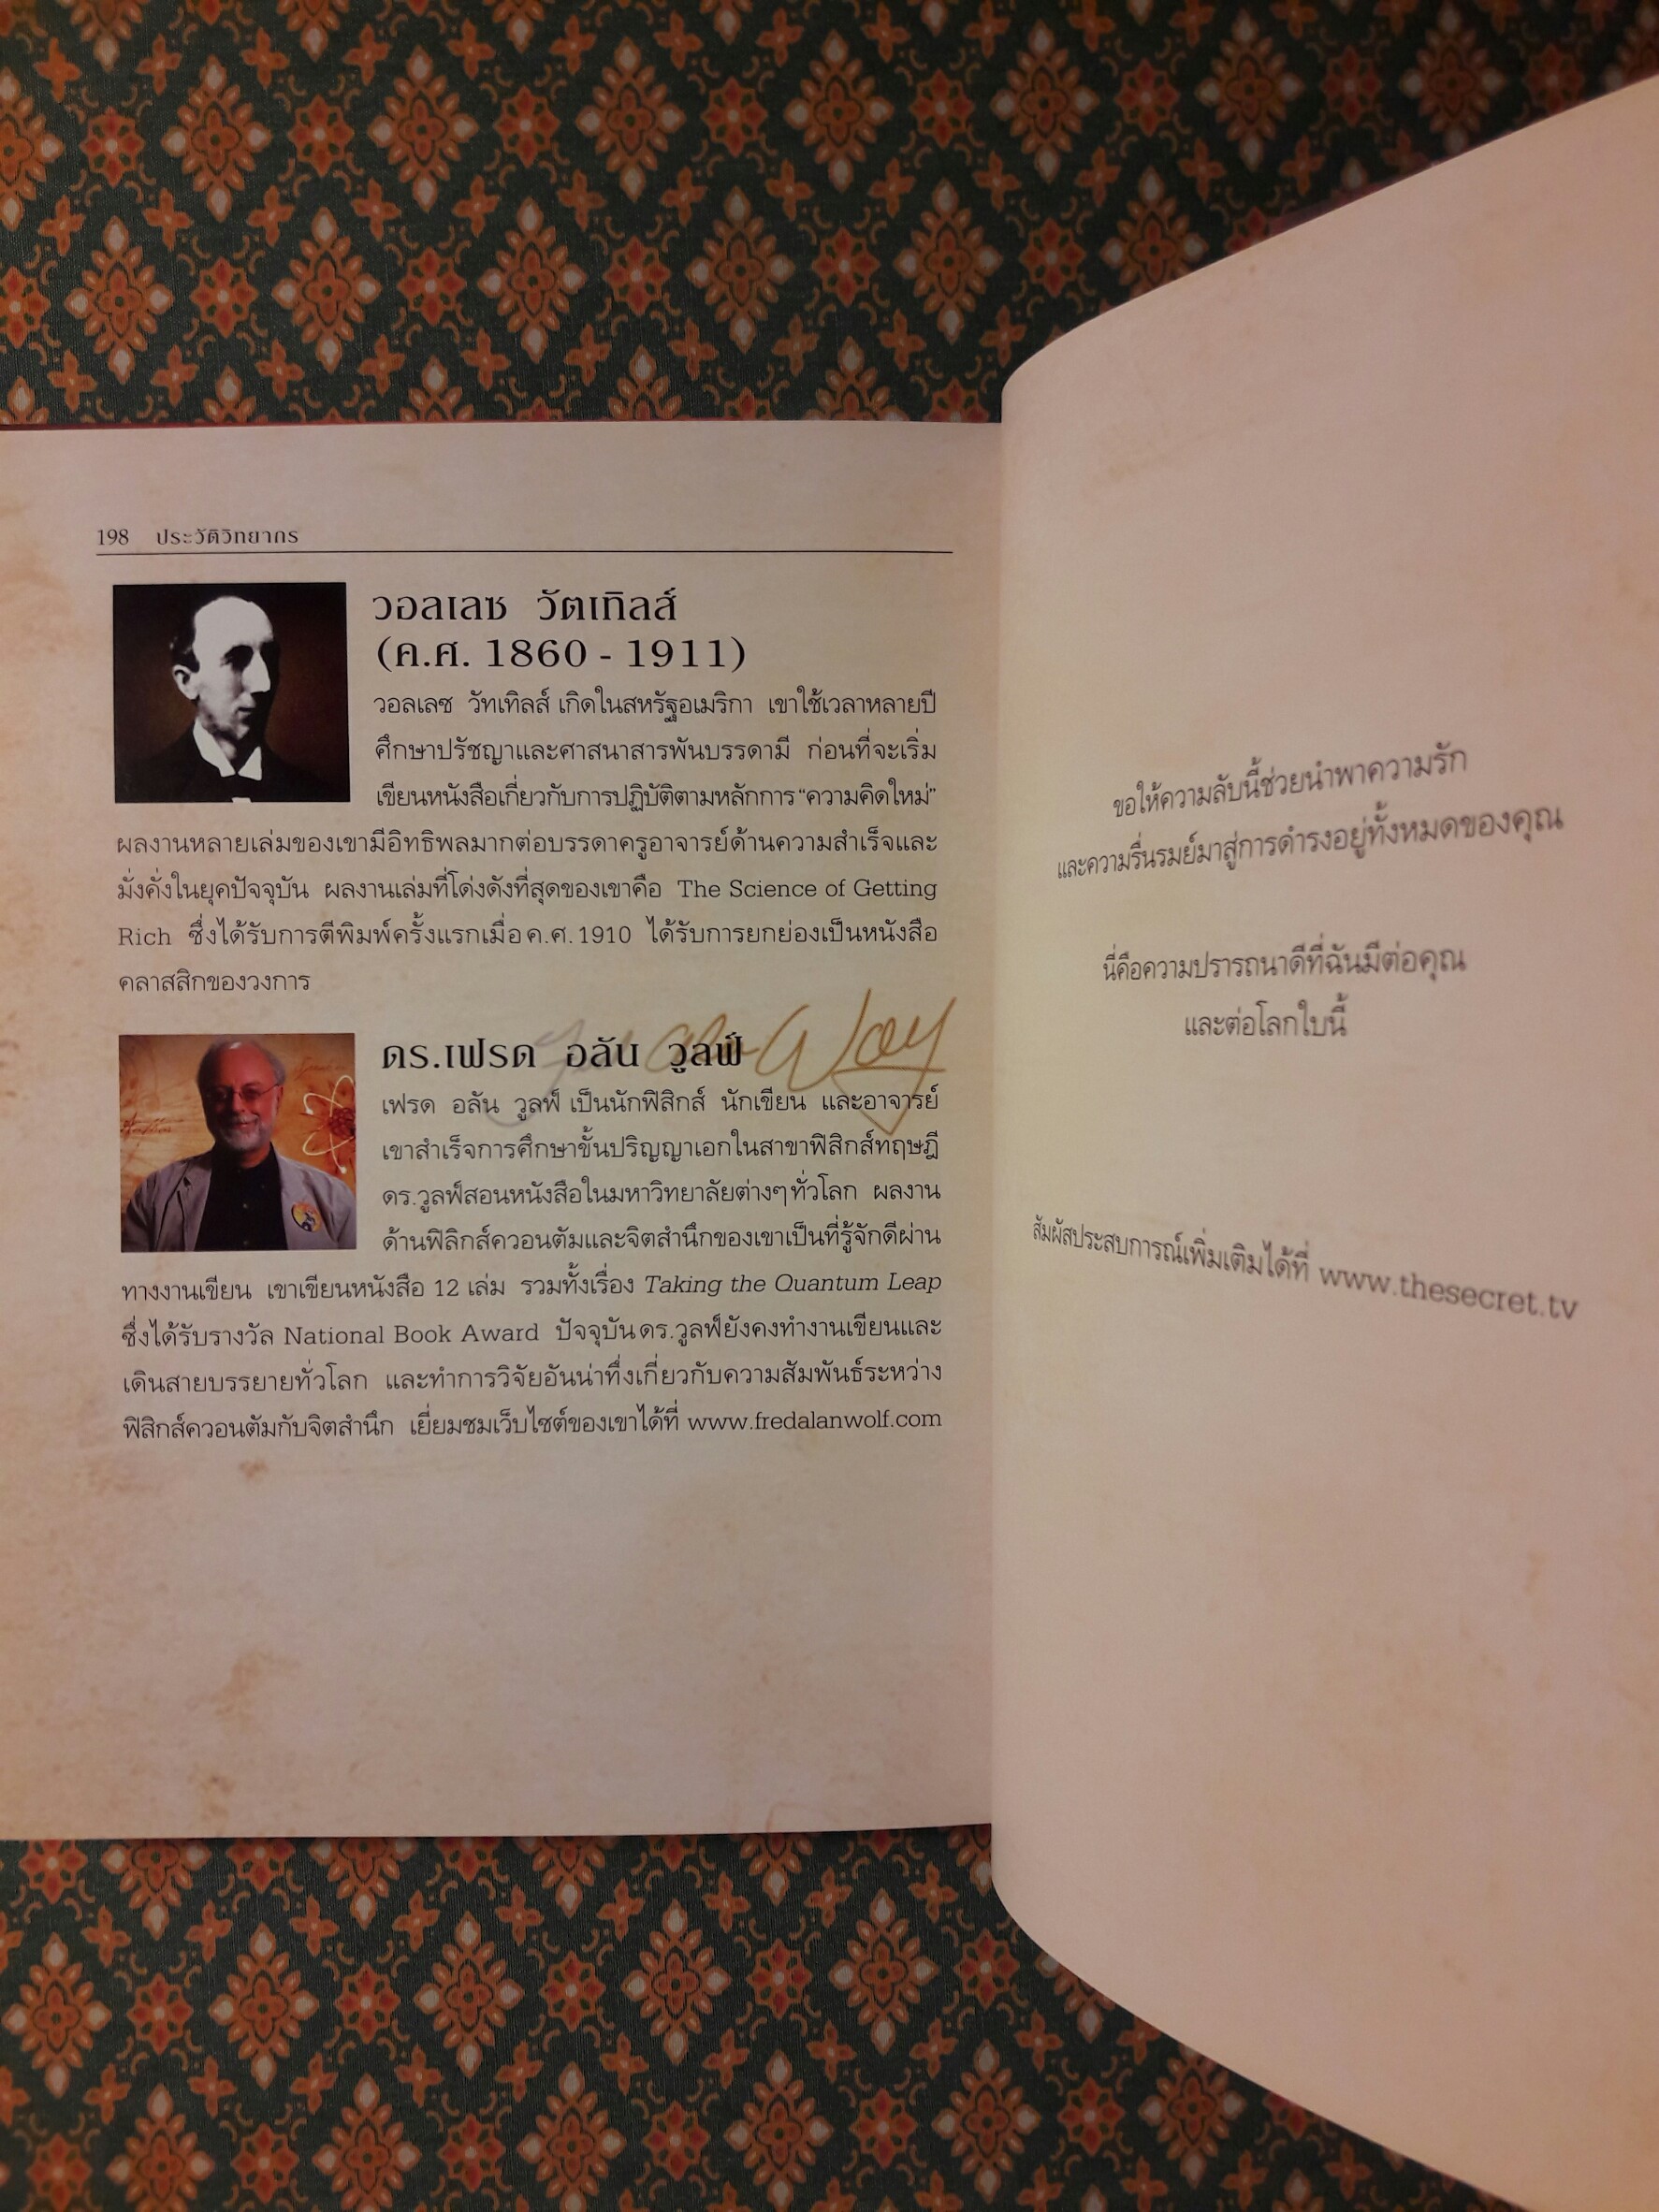 198 ประวัติวิทยากร
วอลเลซ วัตเทิลส์
(ค.ศ. 1860 - 1911)
วอลเลซ วัทเทิลส์ เกิดในสหรัฐอเมริกา เขาใช้เวลาหลายปี
ศึกษาปรัชญาและศาสนาสารพันบรรดามี ก่อนที่จะเริ่ม
เขียนหนังสือเกี่ยวกับการปฏิบัติตามหลักการ “ความคิดใหม่”
ผลงานหลายเล่มของเขามีอิทธิพลมากต่อบรรดาครูอาจารย์ด้านความสำเร็จและ
มั่งคั่งในยุคปัจจุบัน ผลงานเล่มที่โด่งดังที่สุดของเขาคือ The Science of Getting
Rich ซึ่งได้รับการตีพิมพ์ครั้งแรกเมื่อ ค.ศ. 1910 ได้รับการยกย่องเป็นหนังสือ
คลาสสิกของวงการ
ดร.เฟรด อลัน วูลฟ์
เฟรด อลัน วูลฟ์ เป็นนักฟิสิกส์ นักเขียน และอาจารย์
เขาสำเร็จการศึกษาขั้นปริญญาเอกในสาขาฟิสิกส์ทฤษฎี
ดร.วูลฟ์สอนหนังสือในมหาวิทยาลัยต่างๆ ทั่วโลก ผลงาน
ด้านฟิลิกส์ควอนตัมและจิตสำนึกของเขาเป็นที่รู้จักดีผ่าน
ทางงานเขียน เขาเขียนหนังสือ 12 เล่ม รวมทั้งเรื่อง Taking the Quantum Leap
ซึ่งได้รับรางวัล National Book Award ปัจจุบัน ดร.วูลฟ์ยังคงทำงานเขียนและ
เดินสายบรรยายทั่วโลก และทำการวิจัยอันน่าทึ่งเกี่ยวกับความสัมพันธ์ระหว่าง
ฟิสิกส์ควอนตัมกับจิตสำนึก เยี่ยมชมเว็บไซต์ของเขาได้ที่ www.fredalanwolf.com
ขอให้ความลับนี้ช่วยนำพาความรัก
และความรื่นรมย์มาสู่การดำรงอยู่ทั้งหมดของคุณ
นี่คือความปรารถนาดีที่ฉันมีต่อคุณ
และต่อโลกใบนี้
สัมผัสประสบการณ์เพิ่มเติมได้ที่ www.thesecret.tv